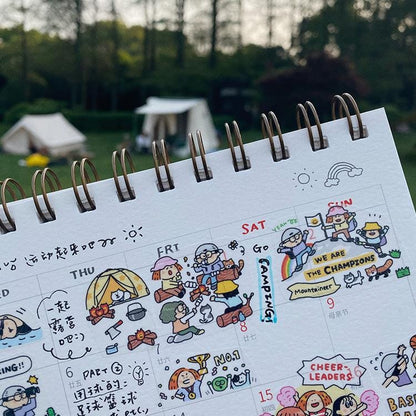 运动起来吧
THU
FRI
SAT
SUN
Go
CAMPING!
WE ARE
THE CHAMPIONS
Mountaineer
一起
露营
吧
6
8
廿七
9
母亲节
PART 2
用球的
NO.1
CHEER
LEADERS
15